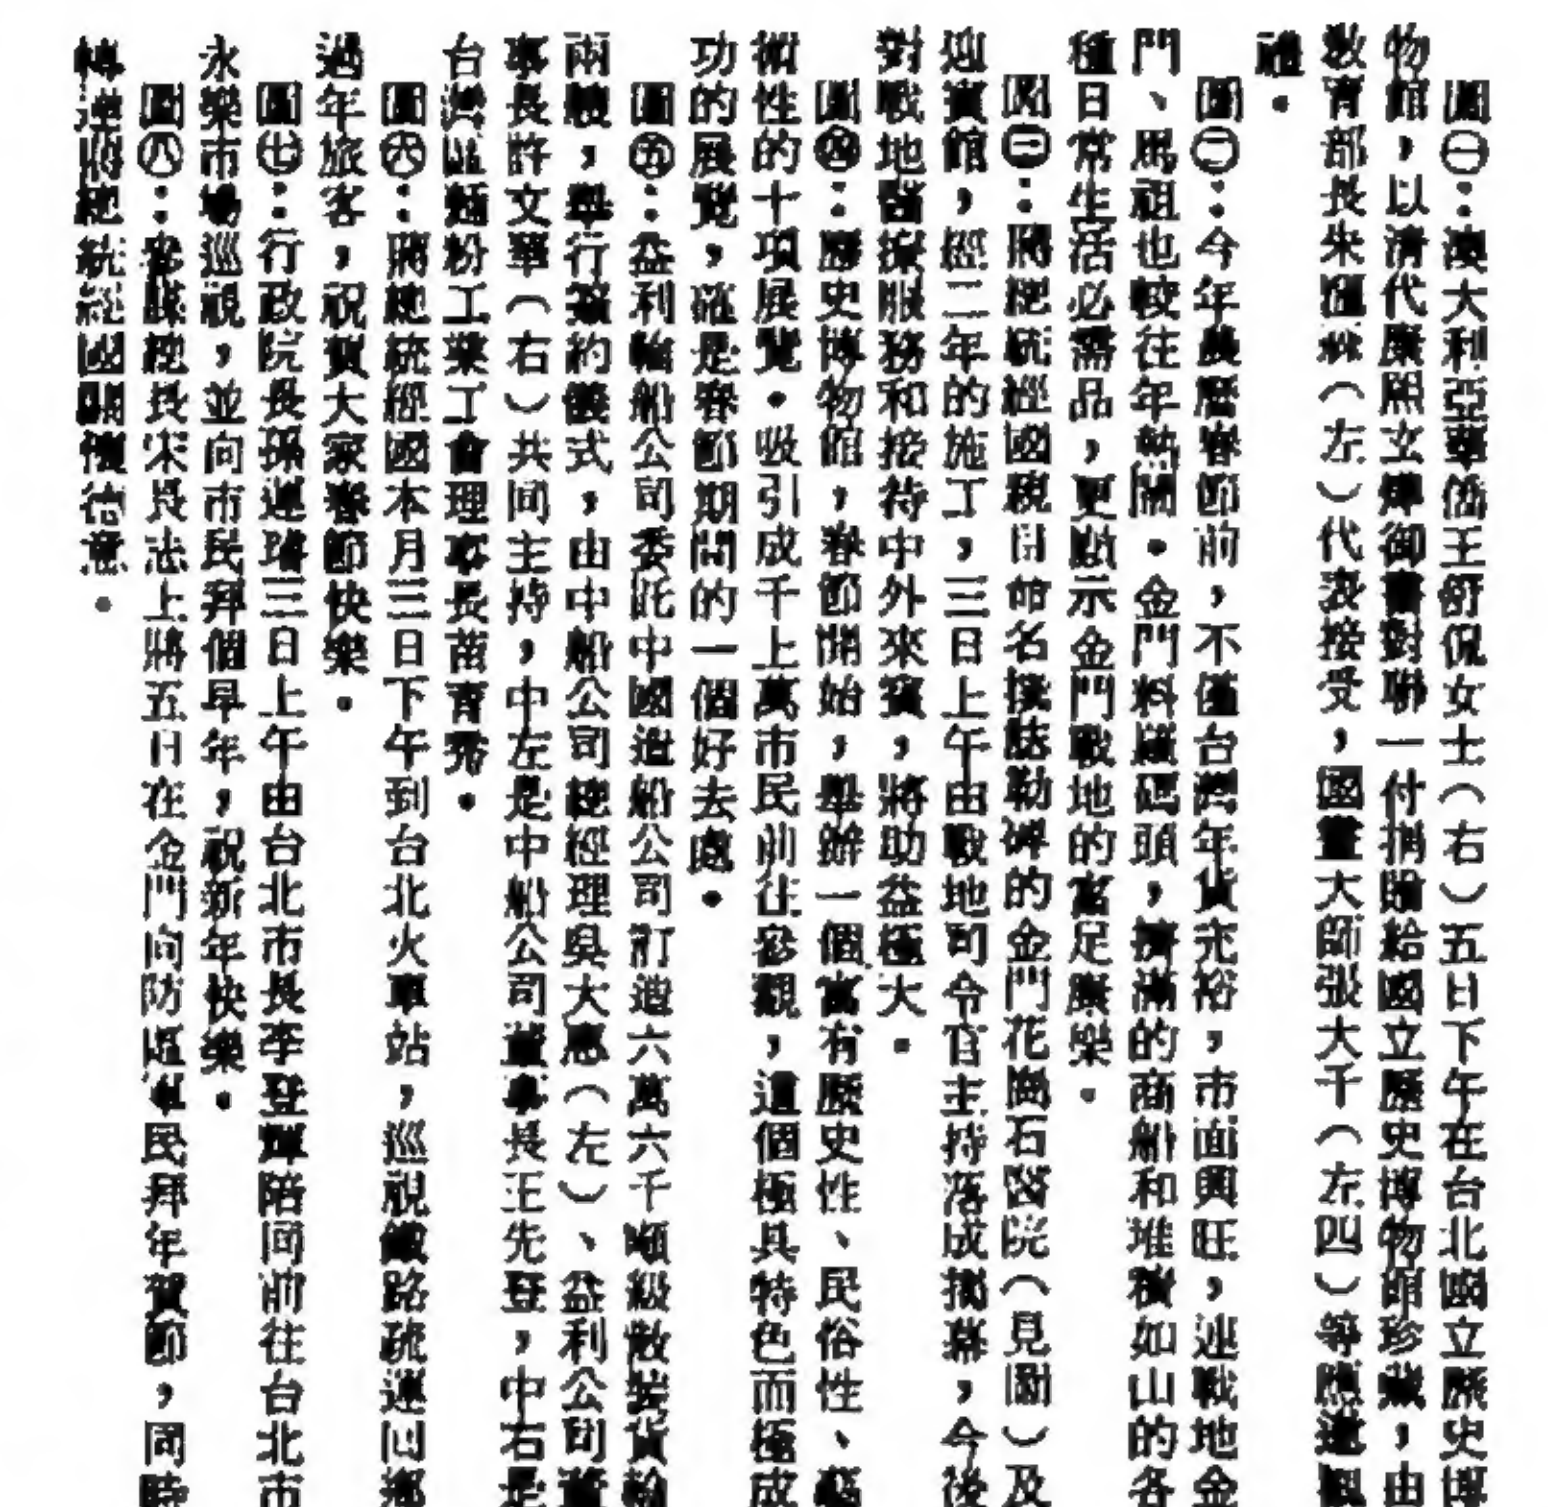 圖㊀：澳大利亞華僑王舒侃女士（右）五日下午在台北國立歷史博
物館，以清代康熙玄燁御書對聯一付捐贈給國立歷史博物館珍藏，由
教育部長朱匯森（左）代表接受，國畫大師張大千（左四）等應邀觀
禮。
圖㊁：今年農曆春節前，不僅台灣年貨充裕，市面興旺，連戰地金
門、馬祖也較往年熱鬧。金門料羅碼頭，擠滿的商船和堆積如山的各
種日常生活必需品，更顯示金門戰地的富足康樂。
圖㊂：蔣總統經國親自命名撰誌勒碑的金門花崗石醫院（見圖）及
迎賓館，經二年的施工，三日上午由戰地司令官主持落成揭幕，今後
對戰地醫療服務和接待中外來賓，將助益極大。
圖㊃：歷史博物館，春節開始，舉辦一個富有歷史性、民俗性、藝
術性的十項展覽。吸引成千上萬市民前往參觀，這個極具特色而極成
功的展覽，確是春節期間的一個好去處。
圖㊄：益利輪船公司委託中國造船公司訂造六萬六千噸級散裝貨輪
兩艘，舉行簽約儀式，由中船公司總經理吳大惠（左）、益利公司董
事長許文華（右）共同主持，中左是中船公司董事長王先登，中右是
台灣區麵粉工業工會理事長苗育秀。
圖㊅：蔣總統經國本月三日下午到台北火車站，巡視鐵路疏運回鄉
過年旅客，祝賀大家春節快樂。
圖㊆：行政院長孫運璿三日上午由台北市長李登輝陪同前往台北市
永樂市場巡視，並向市民拜個早年，祝新年快樂。
圖㊇：參謀總長宋長志上將五日在金門向防區軍民拜年賀節，同時
轉達蔣總統經國關懷德意。